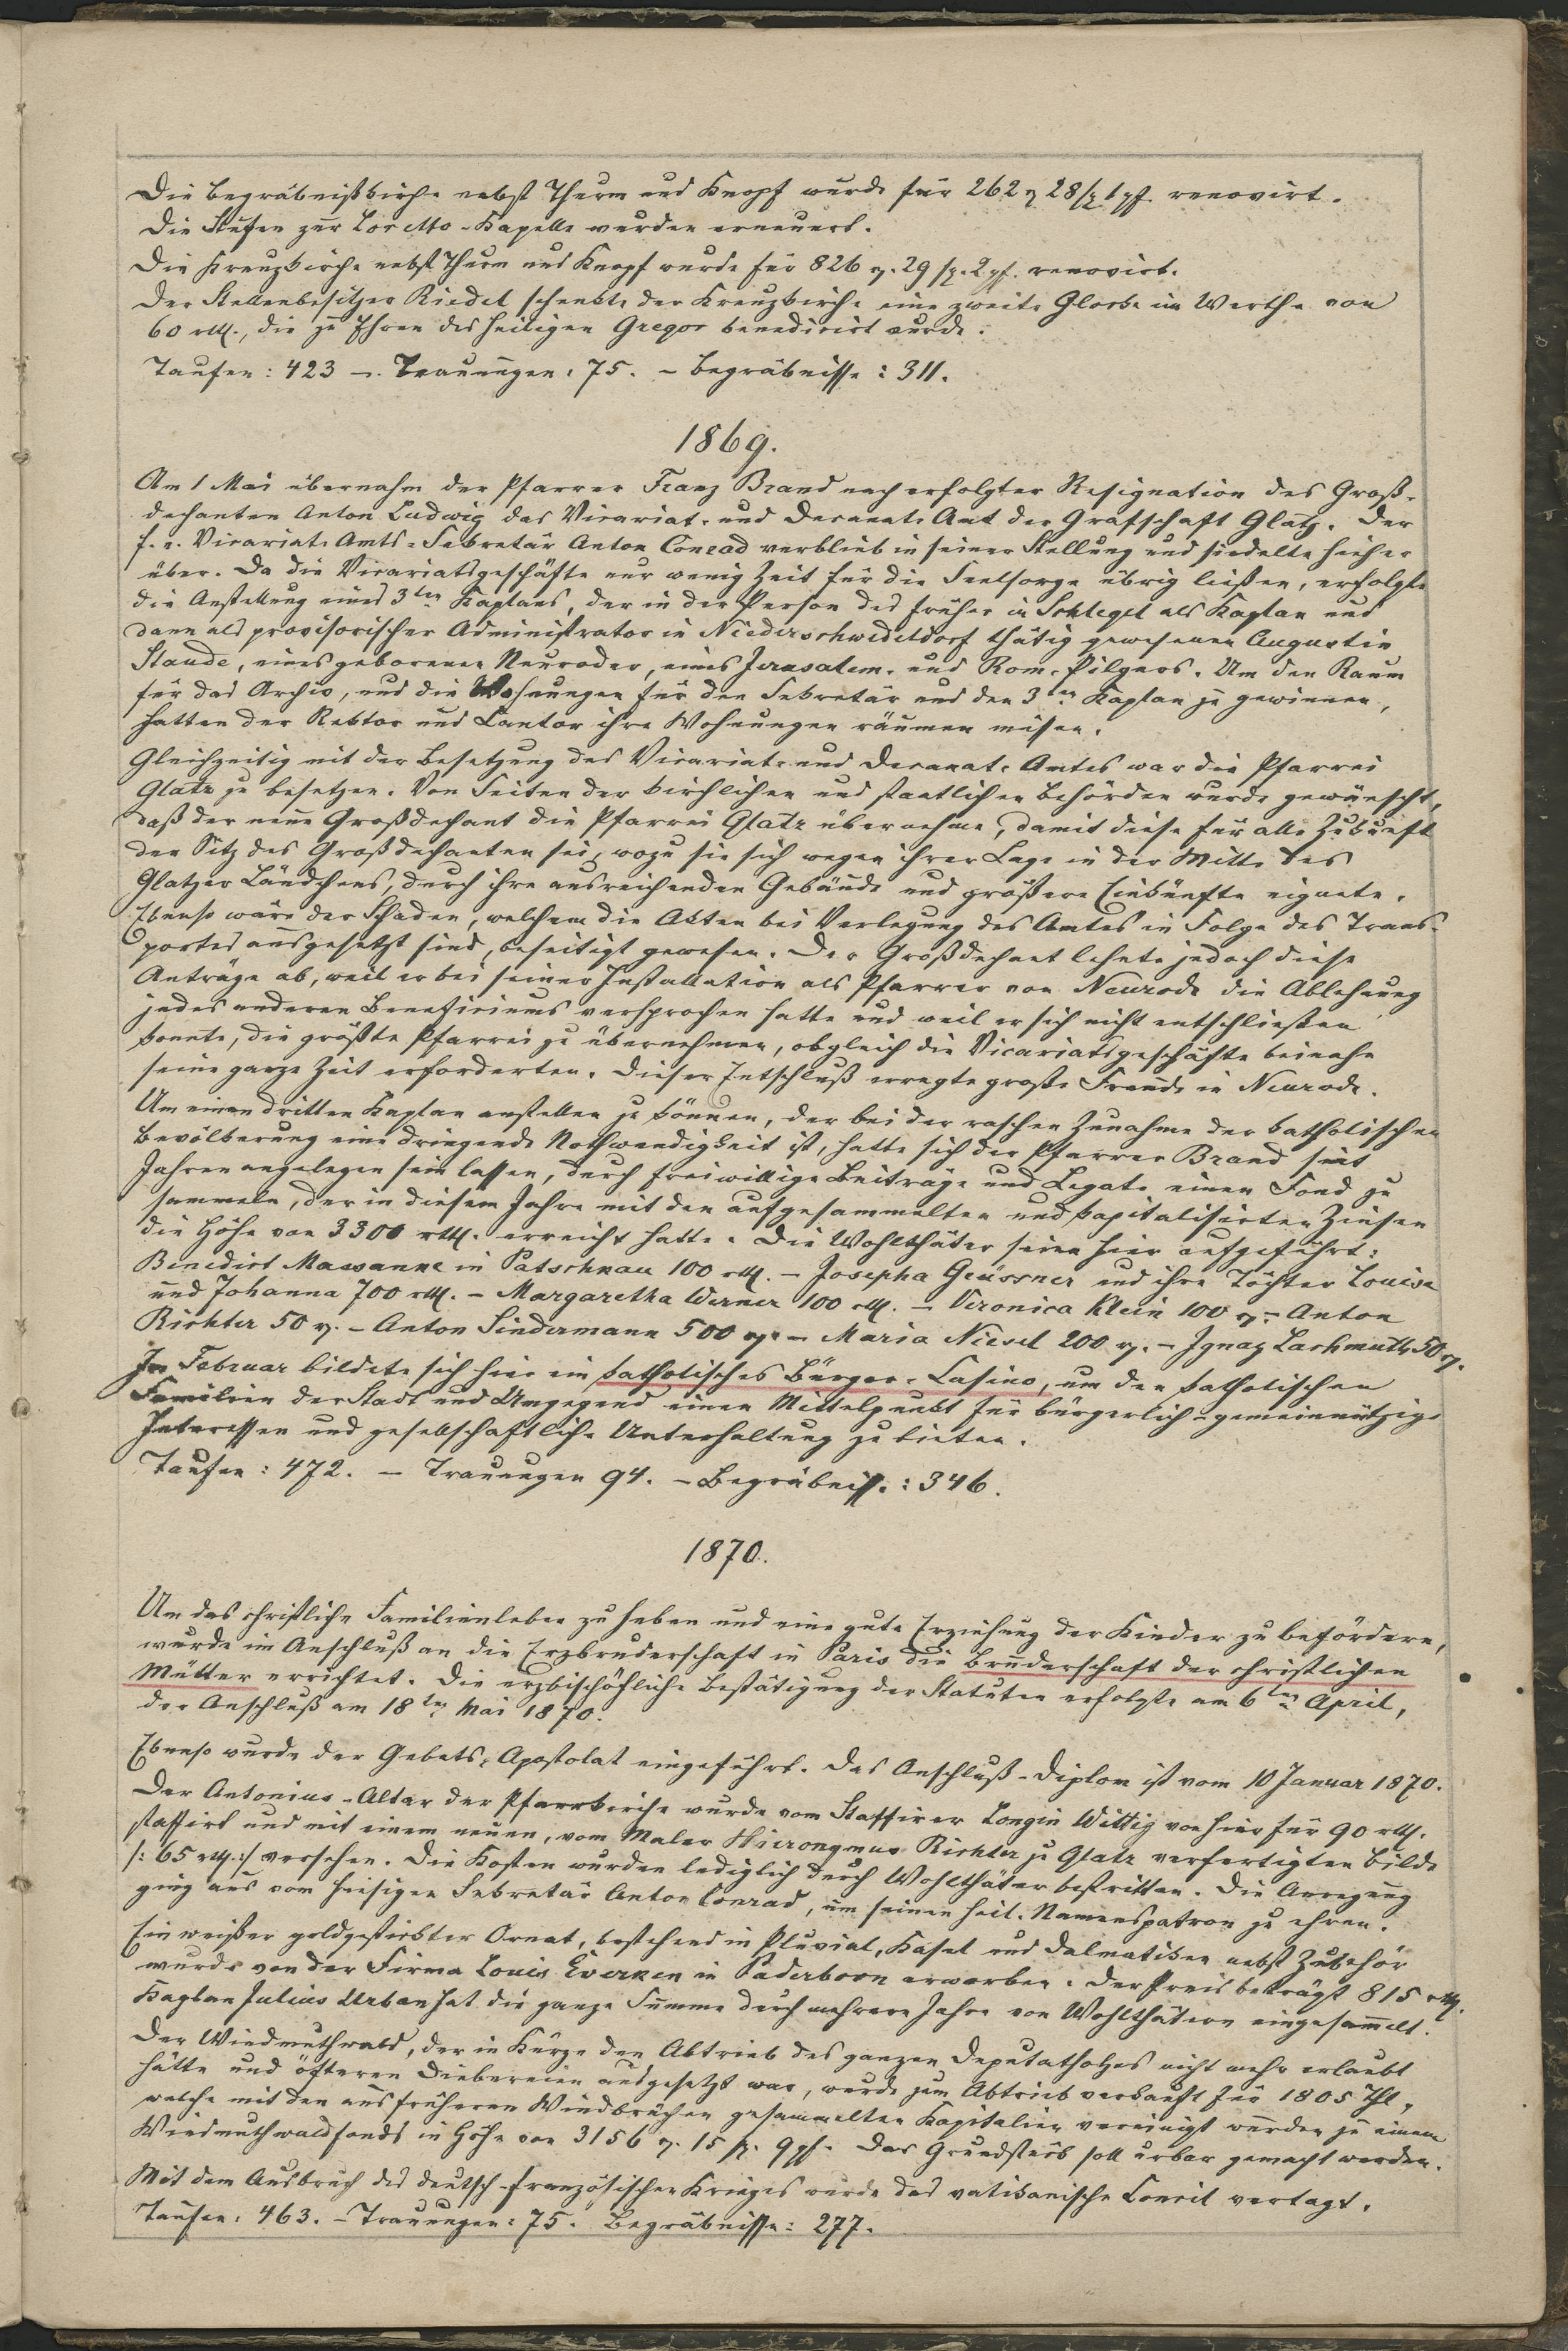 Die Begräbnißkirche nebst Thurm und Knopf wurde für 262 rt 28 sg 1 pf. renovirt.
Die Stufen zur Loretto-Kapelle wurden erneuert.
Die Kreuzkirche nebst Thurm und Knopf wurde für 826 rt. 29 sg. 2 pf. renovirt.
Der Stellenbesitzer Riedel schenkte der Kreuzkirche eine zweite Glocke im Werthe von
60 rtl., die zu Ehren des heiligen Gregor benedicirt wurde.
Taufen: 423 –. Trauungen: 75. – Begräbnisse: 311.
1869.
Am 1 Mai übernahm der Pfarrer Franz Brand nach erfolgter Resignation des Groß-
dechanten Anton Ludwig das Vicariat- und Decanats Amt der Grafschaft Glatz. Der
f. e. Vicariat-Amts-Sekretär Anton Conrad verblieb in seiner Stellung und siedelte hieher
über. Da die Vicariatsgeschäfte nur wenig Zeit für die Seelsorge übrig ließen, erfolgte
die Anstellung eines 3ten Kaplans, der in der Person des früher in Schlegel als Kaplan und
dann als provisorischer Administrator in Niederschwedeldorf thätig gewesenen Augustin
Staude, eines geborenen Neuroder, eines Jerusalem- und Rom-Pilgers. Um den Raum
für das Archiv, und die Wohnungen für den Sekretär und den 3ten Kaplan zu gewinnen,
hatten der Rektor und Cantor ihre Wohnungen räumen müsen.
Gleichzeitig mit der Besetzung des Vicariats und Decanat-Amtes war die Pfarrei
Glatz zu besetzen. Von Seiten der kirchlichen und staatlichen Behörden wurde gewünscht,
daß der neue Großdechant die Pfarrei Glatz übernehme, damit diese für alle Zukunft
der Sitz des Großdechanten sei, wozu sie sich wegen ihrer Lage in der Mitte des
Glatzer Ländchens, durch ihre ausreichenden Gebäude und größere Einkünfte eignete.
Ebenso wäre der Schaden, welchem die Akten bei Verlegung des Amtes in Folge des Trans-
portes ausgesetzt sind, beseitigt gewesen. Der Großdechant lehnte jedoch diese
Anträge ab, weil er bei seiner Installation als Pfarrer von Neurode die Ablehnung
jedes anderen Beneficiums versprochen hatte und weil er sich nicht entschließen
konnte, die größte Pfarrei zu übernehmen, obgleich die Vicariatsgeschäfte beinahe
seine ganze Zeit erforderten. Dieser Entschluß erregte große Freude in Neurode.
Um einen dritten Kaplan anstellen zu können, der bei der raschen Zunahme der katholischen
Bevölkerung eine dringende Nothwendigkeit ist, hatte sich der Pfarrer Brand seit
Jahren angelegen sein lassen, durch freiwillige Beiträge und Legate einen Fond zu
sammeln, der in diesem Jahre mit den aufgesammelten und kapitalisirten Zinsen
die Höhe von 3300 rtl. erreicht hatte. Die Wohlthäter seien hier aufgeführt:
Benedict Massanne in Patschkau 100 rtl. – Josepha Grüssner und ihre Töchter Louise
und Johanna 700 rtl. – Margaretha Werner 100 rtl. – Veronica Klein 100 rt. – Anton
Richter 50 rt. – Anton Sindermann 500 rt. – Maria Niesel 200 rt. – Ignaz Lachmuth 50 rt.
Im Februar bildete sich hier ein katholisches Bürger-Casino, um den katholischen
Familien der Stadt und Umgegend einen Mittelpunkt für bürgerlich-gemeinnützige
Interessen und gesellschaftliche Unterhaltung zu bieten.
Taufen: 472. – Trauungen 94. – Begräbniss.: 346.
1870.
Um das christliche Familienleben zu heben und eine gute Erziehung der Kinder zu befördern,
wurde im Anschluß an die Erzbruderschaft in Paris die Bruderschaft der christlichen
Mütter errichtet. Die erzbischöfliche Bestätigung der Statuten erfolgte am 6ten April,
der Anschluß am 18ten Mai 1870.
Ebenso wurde der Gebets-Apostolat eingeführt. Das Anschluß-Diplom ist vom 10 Januar 1870.
Der Antonius-Altar der Pfarrkirche wurde vom Staffirer Longin Wittig von hier für 90 rtl.
staffirt und mit einem neuen, vom Maler Hieronymus Richter zu Glatz verfertigten Bilde
/: 65 rtl. :/ versehen. Die Kosten wurden lediglich durch Wohlthäter bestritten. Die Anregung
ging aus vom hiesigen Sekretär Anton Conrad, um seinen heil. Namenspatron zu ehren.
Ein weißer goldgestickter Ornat, bestehend in Pluvial, Kasel und Dalmatiken nebst Zubehör
wurde von der Firma Louis Everken in Paderborn erworben. Der Preis beträgt 815 rtl.
Kaplan Julius Urban hat die ganze Summe durch mehrere Jahre von Wohlthätern eingesammelt.
Der Wiedmuthwald, der in Kürze den Abtrieb des ganzen Deputatholzes nicht mehr erlaubt
hätte und öfteren Diebereien ausgesetzt war, wurde zum Abtrieb verkauft für 1805 Thl,
welche mit den aus früheren Windbrüchen gesammelten Kapitalien vereinigt wurden zu einem
Wiedmuthwaldfonds in Höhe von 3156 rt. 15 sg. 9 pf. Das Grundstück soll urbar gemacht werden.
Mit dem Ausbruch des deutsch-französischen Krieges wurde das vatikanische Concil vertagt.
Taufen: 463. – Trauungen: 75. Begräbnisse: 277.